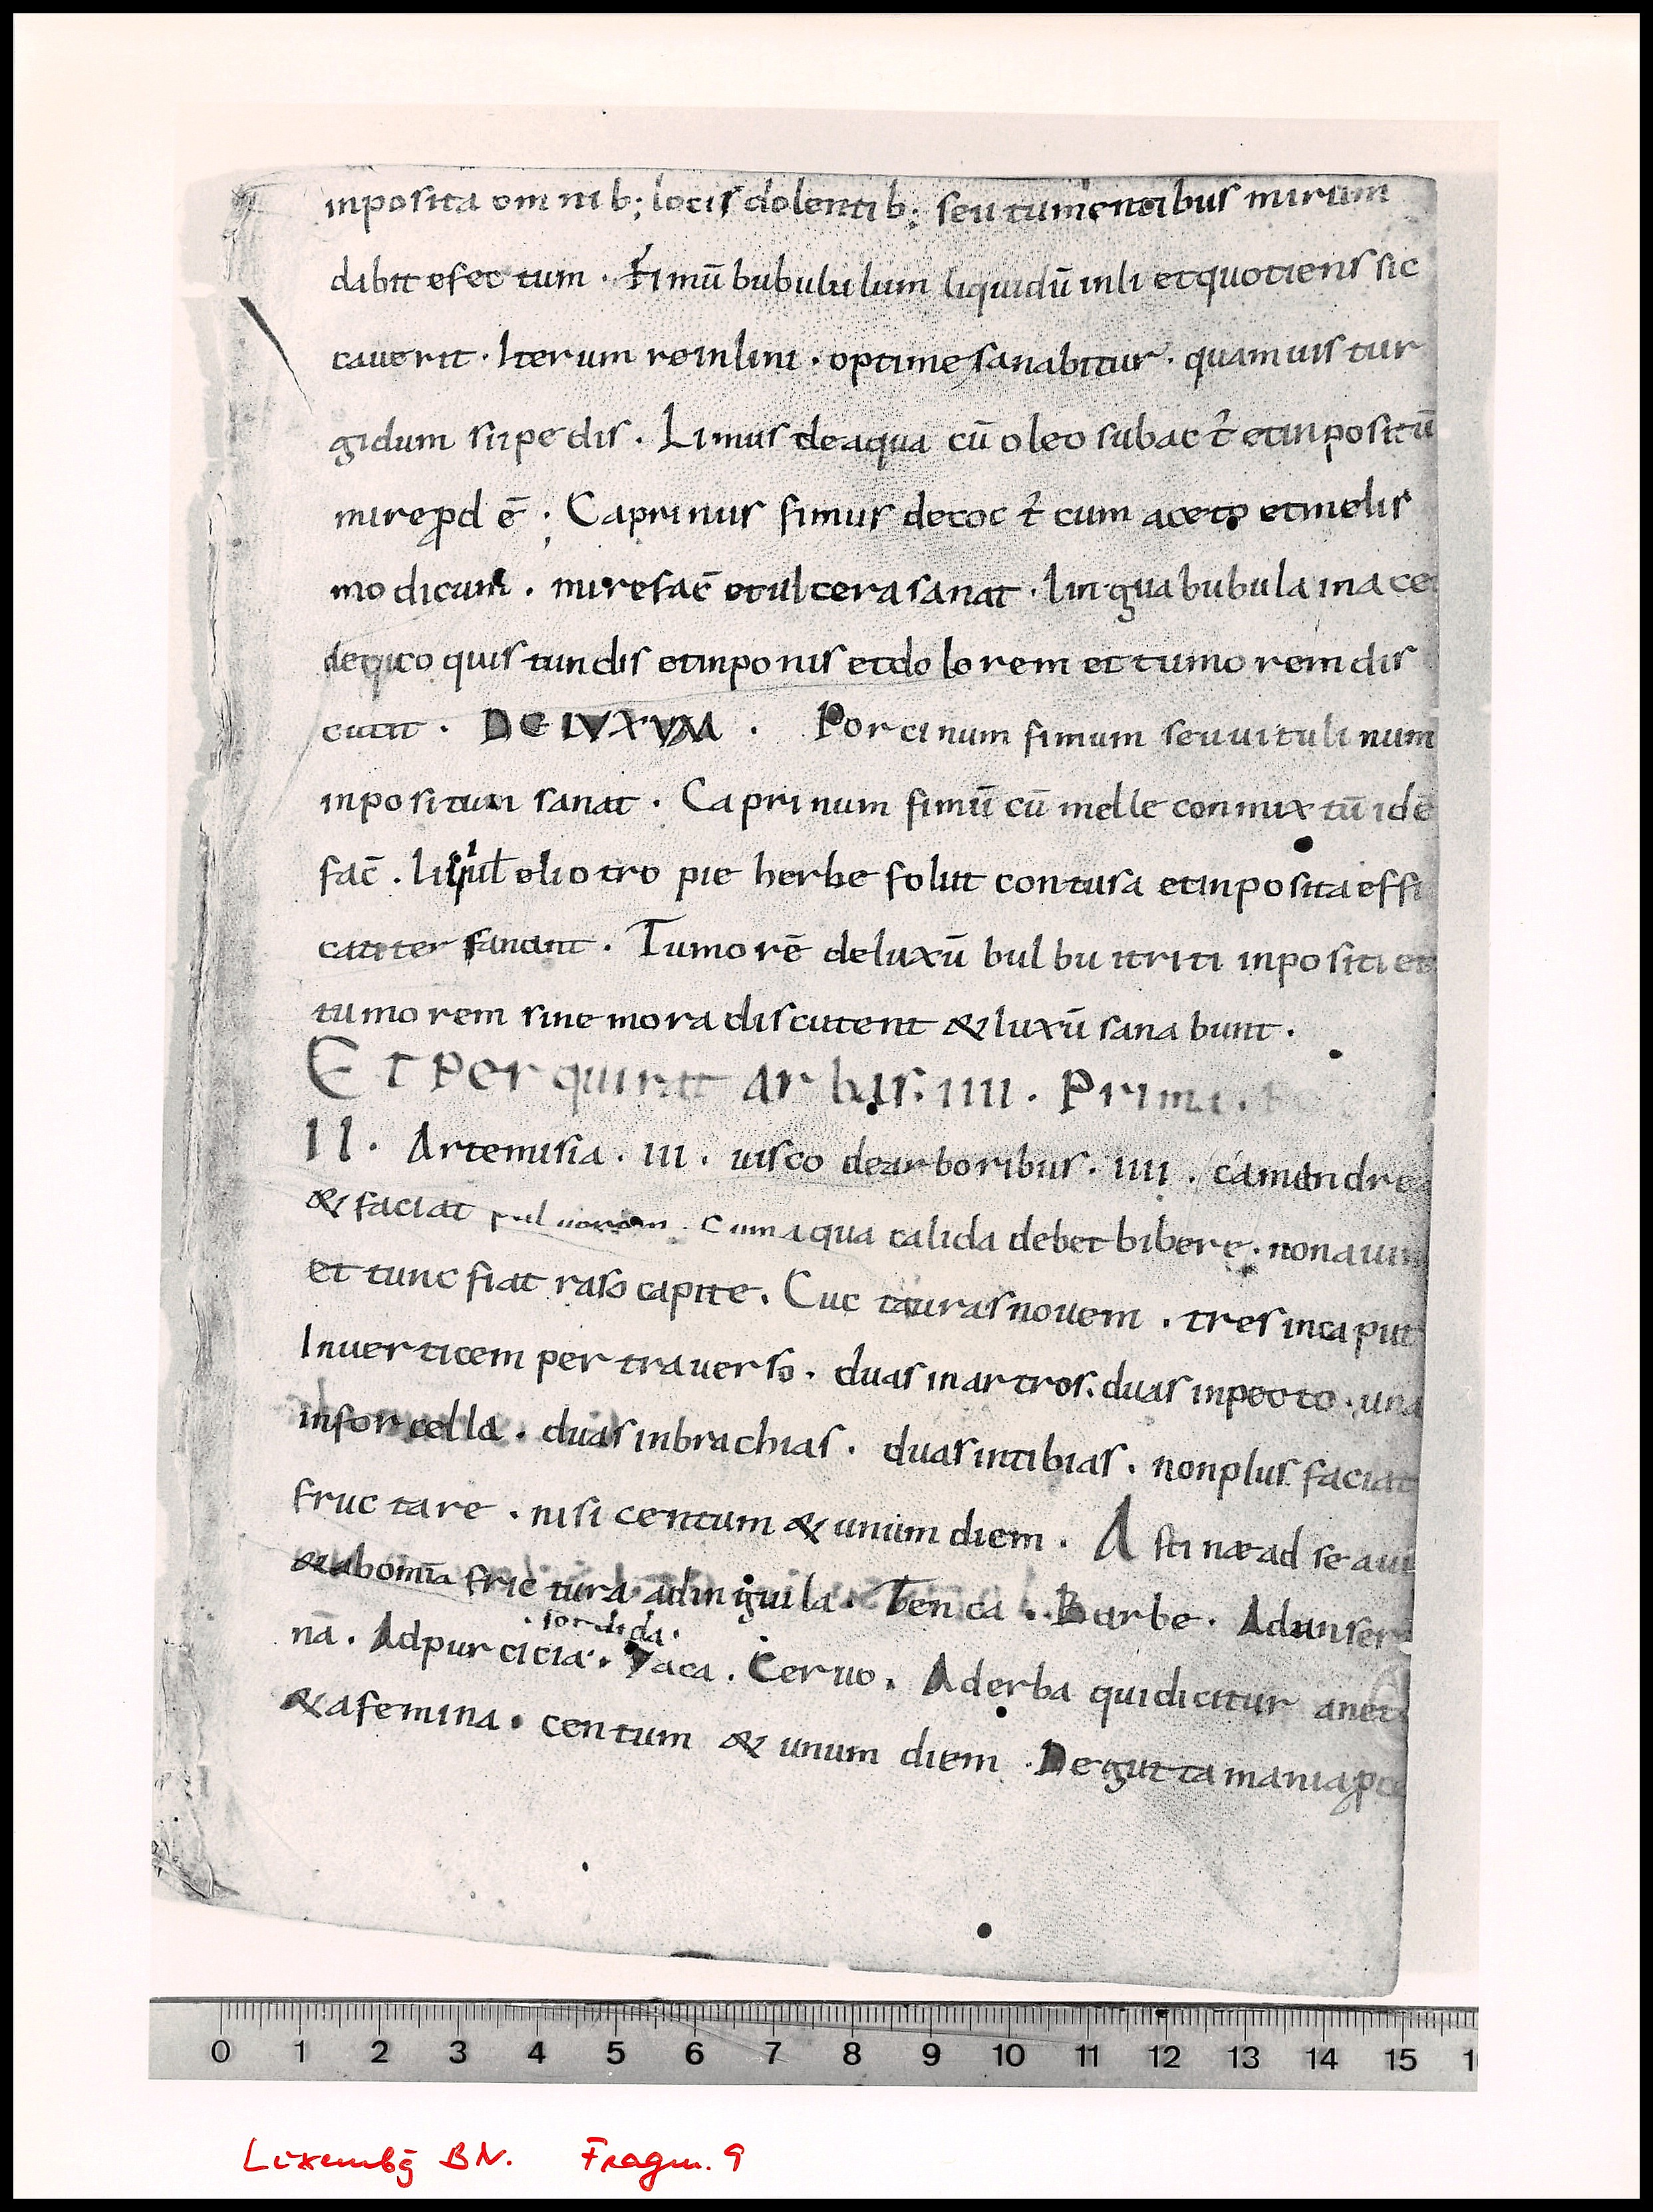 inposita omnib; locis dolentib; seu tumentibus mirum
dabit efectum · Fimū bubululum liquidū inli et quotiens sic
cauerit · Iterum reinlini · optime sanabitur · quamuis tur
gidum sit pedis · Limus de aqua cū oleo subact̄ et inpositū
mire p̄dē ; Caprinus fimus decoct̄ cum aceto et melis
modicum · mire fac̄ et ulcera sanat · lingua bubula in ace
quis tundis et inponis et dolorem et tumorem dis
cutit · DE LVXVM · Porcinum fimum seu uitulinum
inpositum sanat · Caprinum fimū cū melle conmixtū idē
fac̄ · eliotropie herbe folia contusa et inposita effi
caciter sanant · Tumorē de luxū bulbu itriti inpositi et
tumorem sine mora discutent & luxū sanabunt ·
Et perquirat arbas · IIII · Prima ·
II · Artemisia · III · uisco de arboribus · IIII · camandre
& faciat puluerem · cum aqua calida debet bibere · non a uin
et tunc fiat raso capite · Cuc tauras nouem · tres in caput
In uerticem per trauerso · duas in artros · duas in pecto · una
in forcella · duas in brachias · duas in tibias · non plus faciat
fructare · nisi centum & unum diem · Astinæ ad se aui
& ab omīa frictura ad inguila · Tenca · Barbe · Ad anser
· sordida ·
nā · Ad purcicia · Vaca · Ceruo · Ad erba qui dicitur anet
& a femina · centum & unum diem · De gutta mania
0 1 2 3 4 5 6 7 8 9 10 11 12 13 14 15
Luxembg BN. Fragm. 9